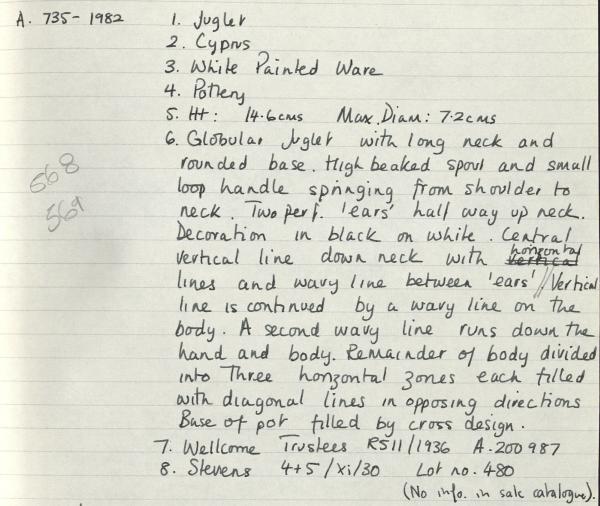 A. 735-1982 1. Juglet
2. Cyprus
3. White Painted Ware
4. Pottery
5. Ht: 14.6cms Max. Diam: 7.2cms
6. Globular Juglet with long neck and
rounded base. High beaked spout and small
loop handle springing from shoulder to
neck. Two perf. 'ears' half way up neck.
Decoration in black on white. Central
horizontal
vertical line down neck with vertical
lines and wavy line between 'ears' // Vertical
line is continued by a wavy line on the
body. A second wavy line runs down the
hand and body. Remainder of body divided
into Three horizontal zones each filled
with diagonal lines in opposing directions
Base of pot filled by cross design.
7. Wellcome Trustees R511/1936 A.200987
8. Stevens 4+5/xi/30 Lot no. 480
(No info. in sale catalogue).
568
569